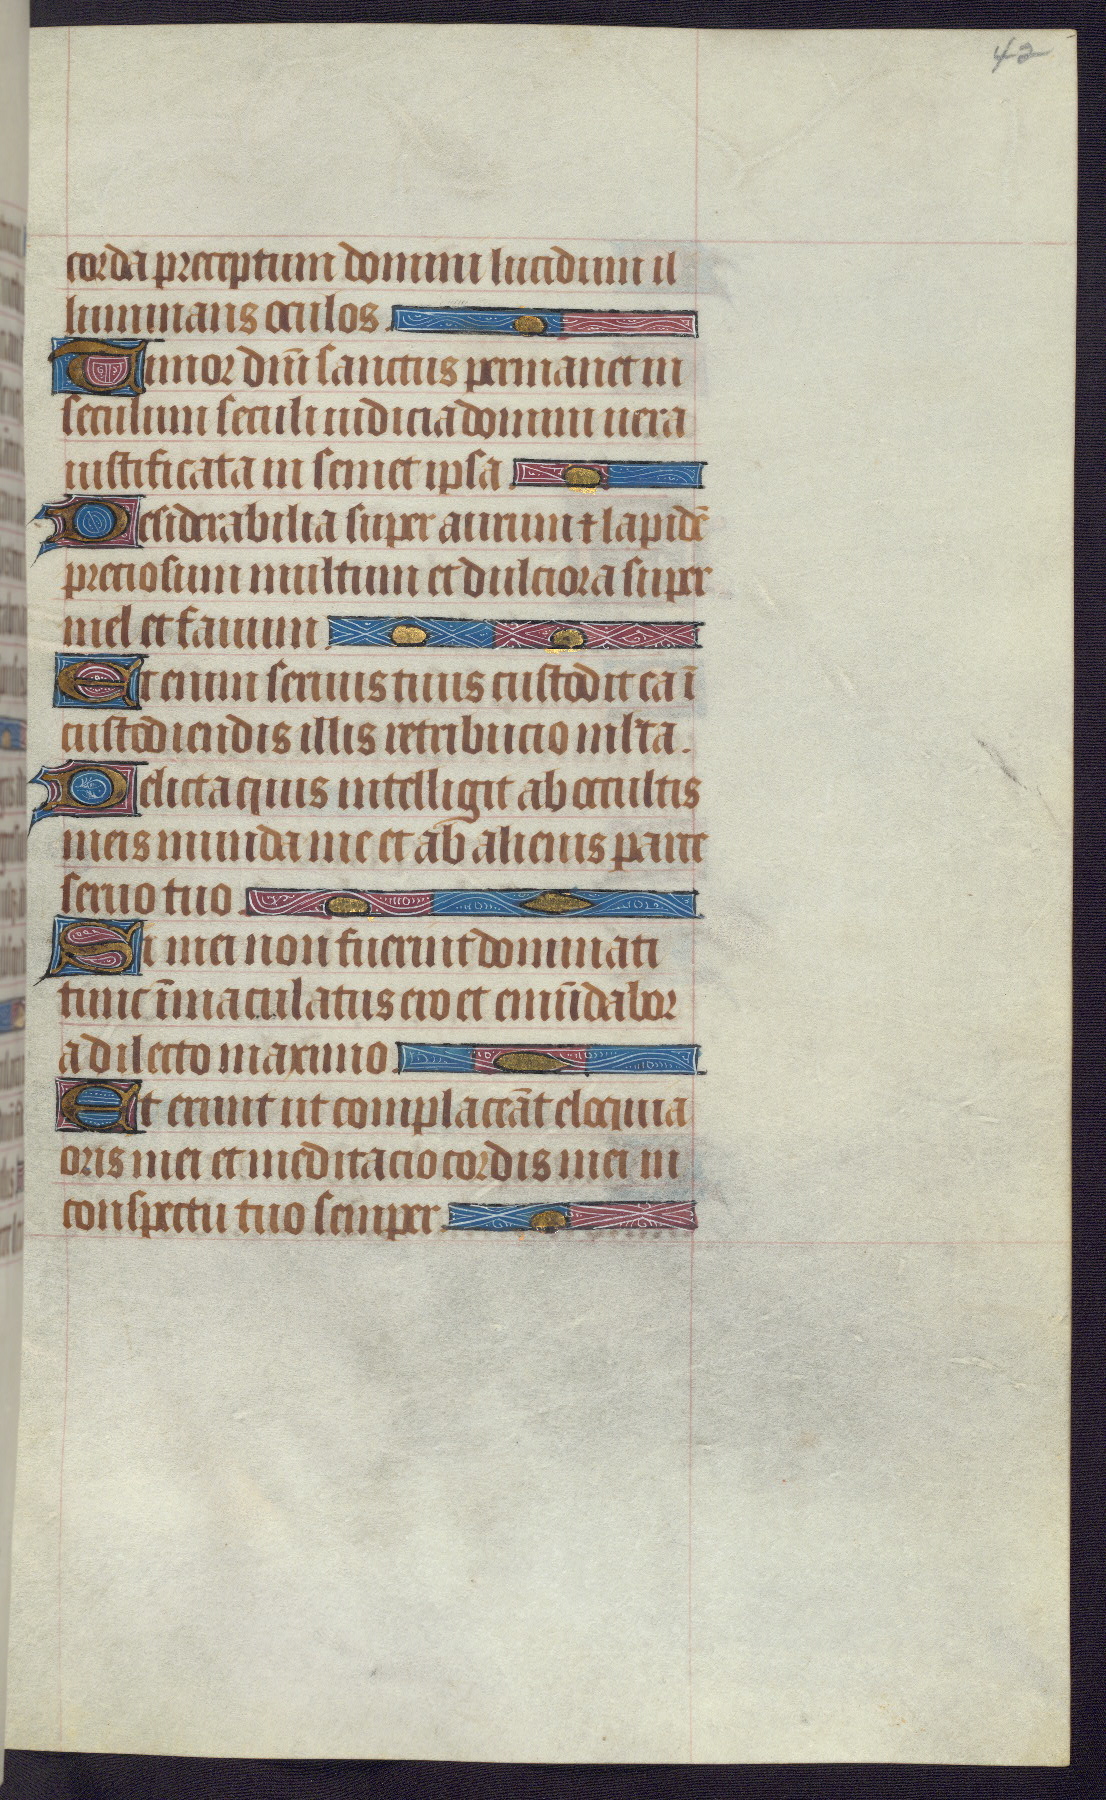 42
corda preceptum domini lucidum il
luminans oculos.
Timor dñi sanctus permanet in
seculum seculi iudicia domini uera
iustificata in semet ipsa.
Desiderabilia super aurum ⁊ lapidẽ
preciosum multum et dulciora super
mel et fauum.
Et enim seruus tuus custodit ea ĩ
custodiendis illis retribucio mlta.
Delicta quis intelligit ab occultis
meis munda me et ab alienis parce
seruo tuo.
Si mei non fuerint dominati
tunc ĩmaculatus ero et emũdabor
a dilecto maximo.
Et erunt ut complaceãt eloquia
oris mei et meditacio cordis mei in
conspectu tuo semper.